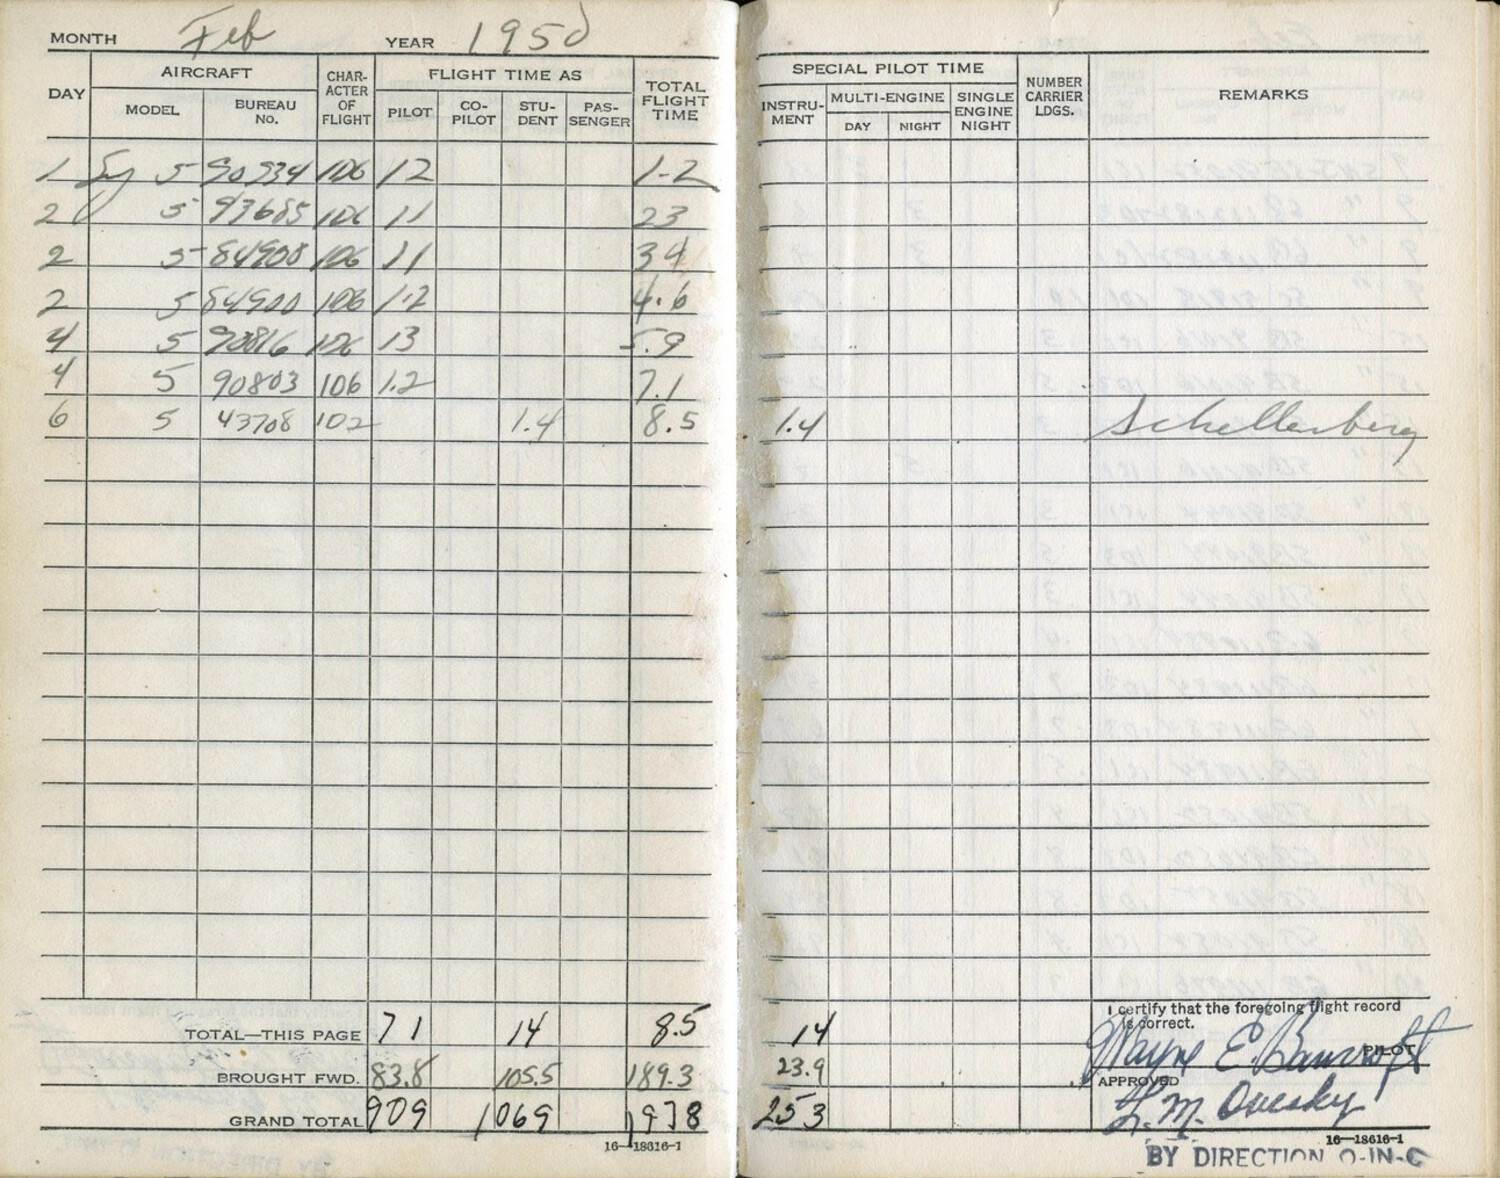 MONTH Feb YEAR 1950
DAY AIRCRAFT CHAR-ACTER OF FLIGHT FLIGHT TIME AS TOTAL FLIGHT TIME
MODEL BUREAU NO. PILOT CO-PILOT STU-DENT PAS-SENGER
1 5 90934 106 1 2 1-2
2 5 93685 106 1 1 2 3
2 5 84908 106 1 1 3 4
2 5 84900 106 1.2 4.6
4 5 90816 106 1 3 5.9
4 5 90803 106 1.2 7.1
6 5 43708 102 1.4 8.5
TOTAL—THIS PAGE 7 1 14 8.5
BROUGHT FWD. 83.8 105.5 189.3
GRAND TOTAL 909 1069 1978
16—18616-1
SPECIAL PILOT TIME NUMBER CARRIER LDGS. REMARKS
INSTRU-MENT MULTI-ENGINE SINGLE ENGINE NIGHT
DAY NIGHT
1.4 Schellenberg
14
23.9
253
I certify that the foregoing flight record is correct.
Wayne E. Bancroft
PILOT
APPROVED
16—18616-1
BY DIRECTION O-IN-C